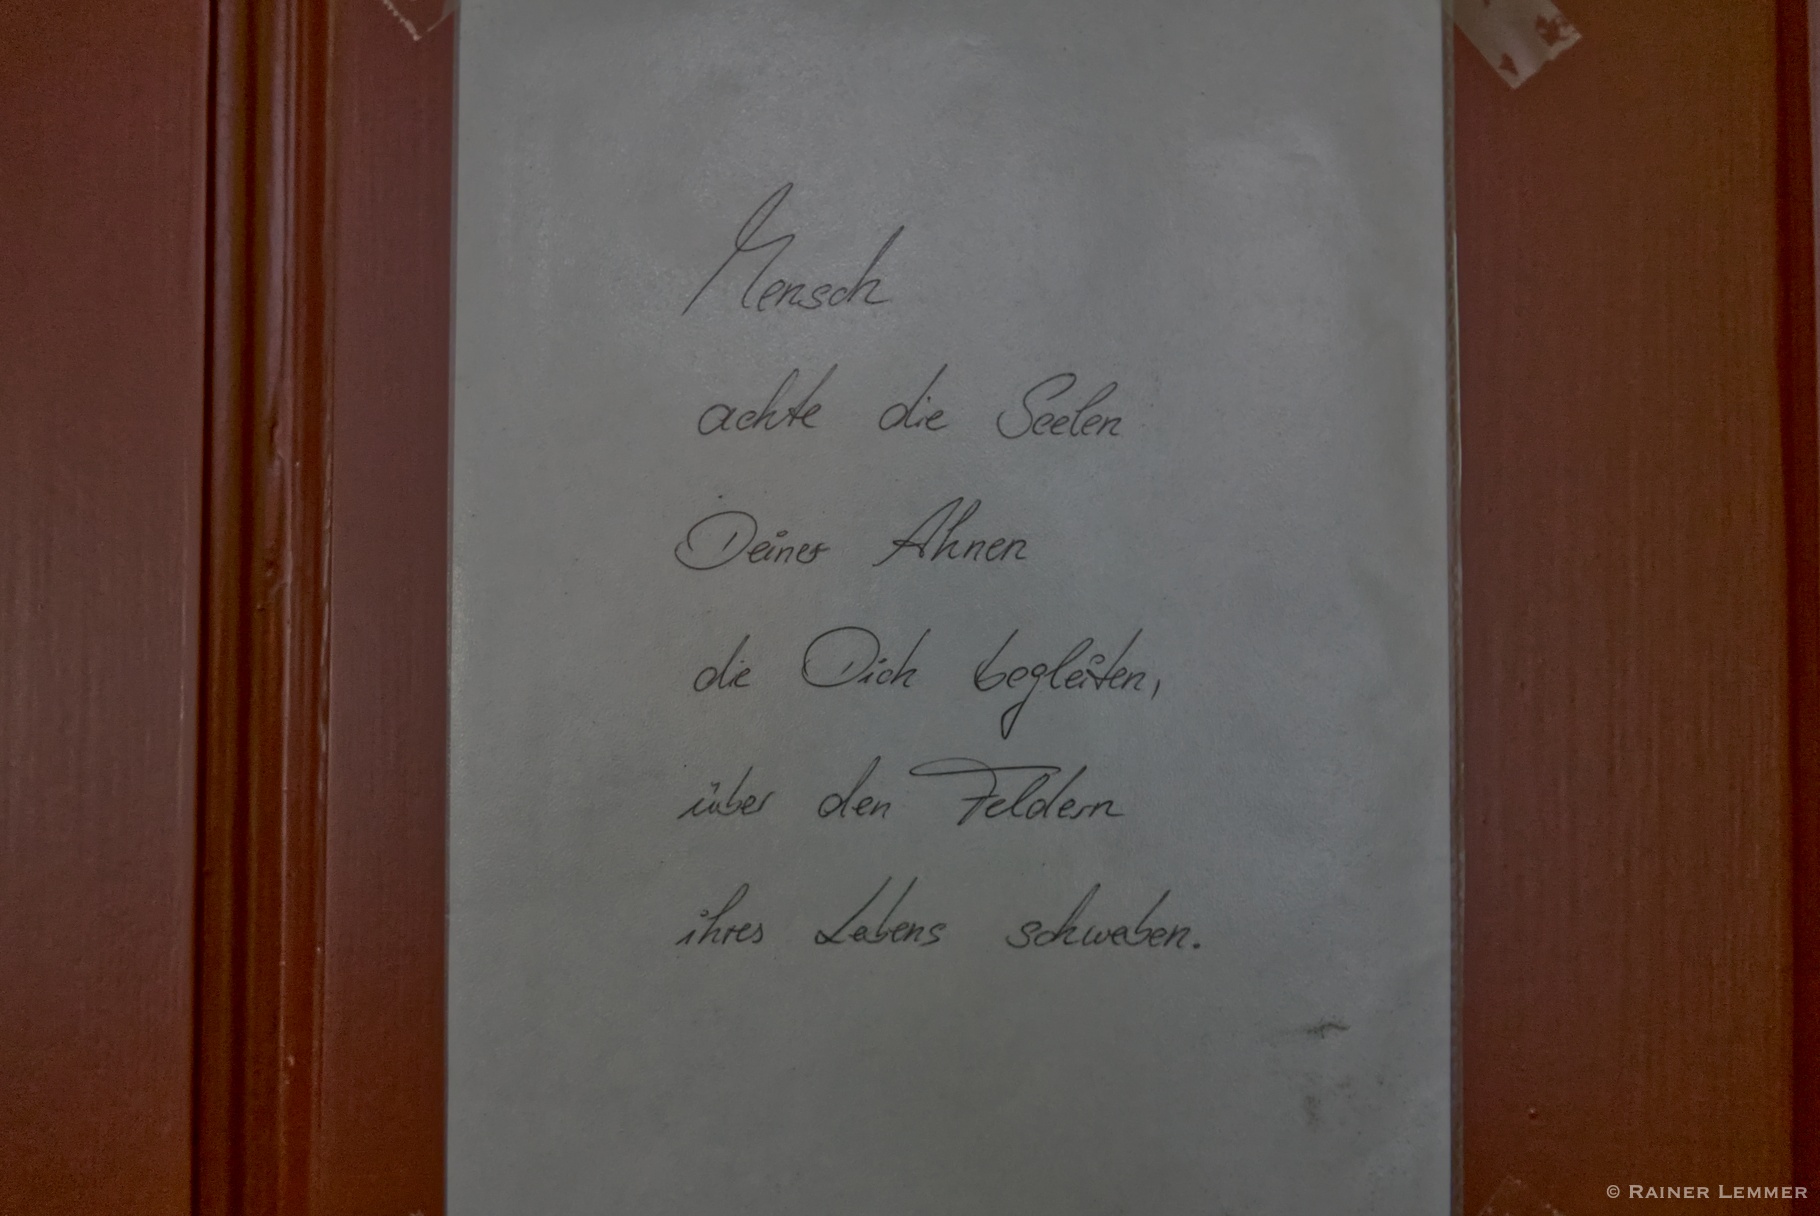 Mensch
achte die Seelen
Deiner Ahnen
die Dich begleiten,
über den Feldern
ihres Lebens schweben.
© RAINER LEMMER